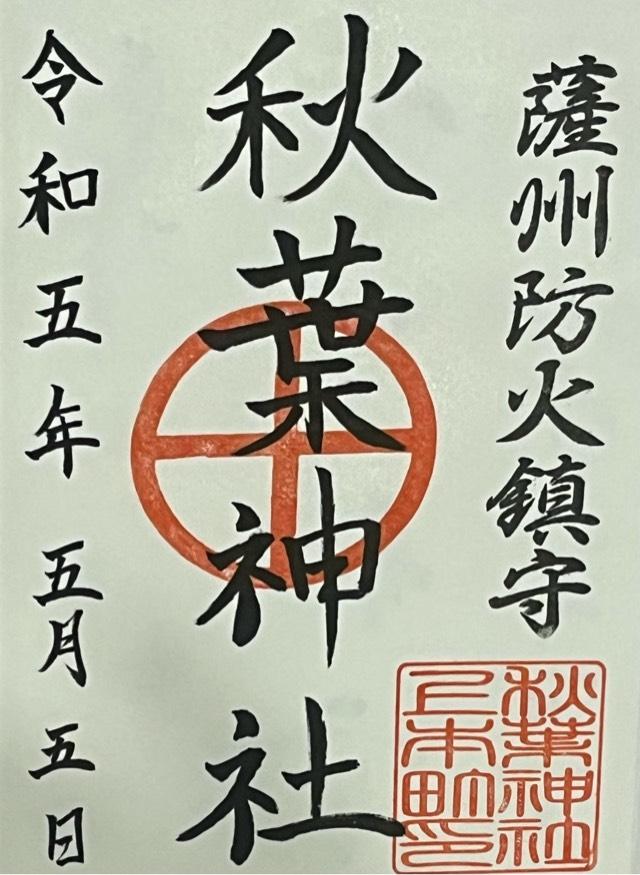 薩州防火鎮守
秋葉神社
令和五年 五月五日
秋葉神社
上本町印